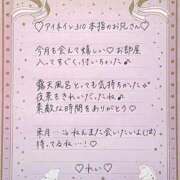 ♡アイネイン310 本指のお兄さん♡
今月も会えて嬉しい♡お部屋
入ってすぐくっ付いちゃった♪
露天風呂とっても気持ちかったね
夜景もきれいだったね♪
素敵な時間をありがとう♡
来月
またあいたいよ
待ってるね…!♡
♡れい♡